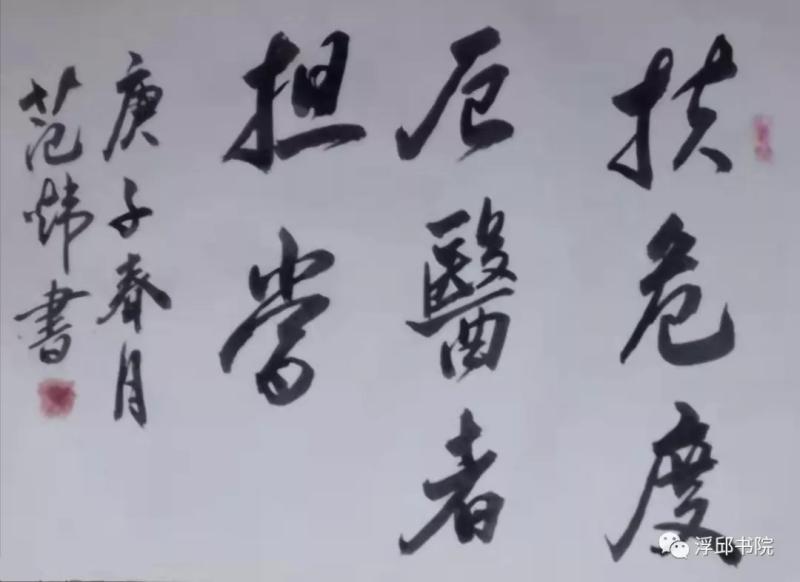 扶危度
厄醫者
担当
庚子春月
范炜書
浮邱书院